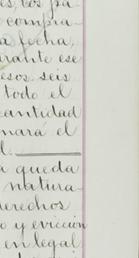 compra
fecha,
rante ese
esos seis
todo el
cantidad
nará el
l.
a queda
natura
derechos
o y evicción
en legal